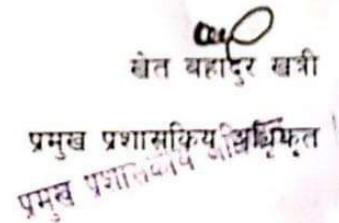 खेत बहादुर खत्री
प्रमुख प्रशासकिय अधिकृत
प्रमुख प्रशासकीय